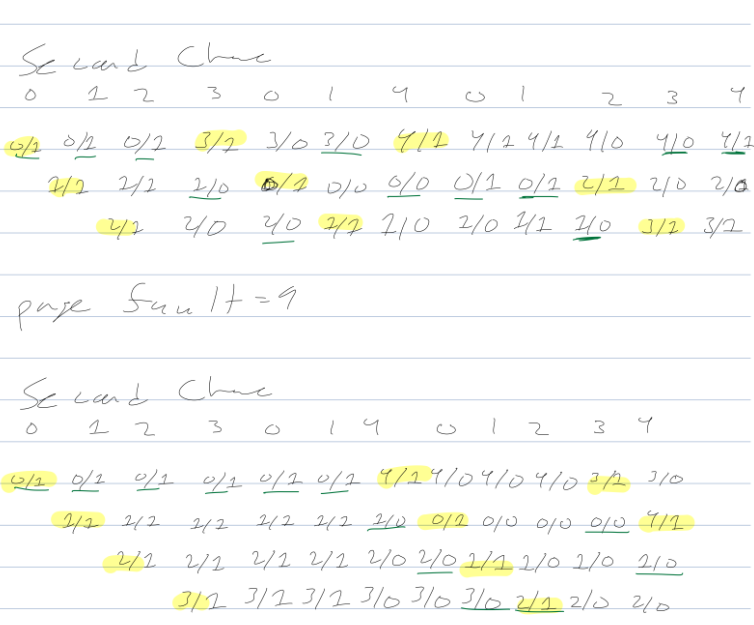 Second Chance
0 1 2 3 0 1 4 0 1 2 3 4
0/1 0/1 0/1 3/1 3/0 3/0 4/1 4/1 4/1 4/0 4/0 4/1
1/1 1/1 1/0 0/1 0/0 0/0 0/1 0/1 2/1 2/0 2/0
2/1 2/0 2/0 1/1 1/0 1/0 1/1 1/0 3/1 3/1
page fault = 9
Second Chance
0 1 2 3 0 1 4 0 1 2 3 4
0/1 0/1 0/1 0/1 0/1 0/1 4/1 4/0 4/0 4/0 3/1 3/0
1/1 1/1 1/1 1/1 1/1 1/0 0/1 0/0 0/0 0/0 4/1
2/1 2/1 2/1 2/1 2/0 2/0 1/1 1/0 1/0 1/0
3/1 3/1 3/1 3/0 3/0 3/0 2/1 2/0 2/0